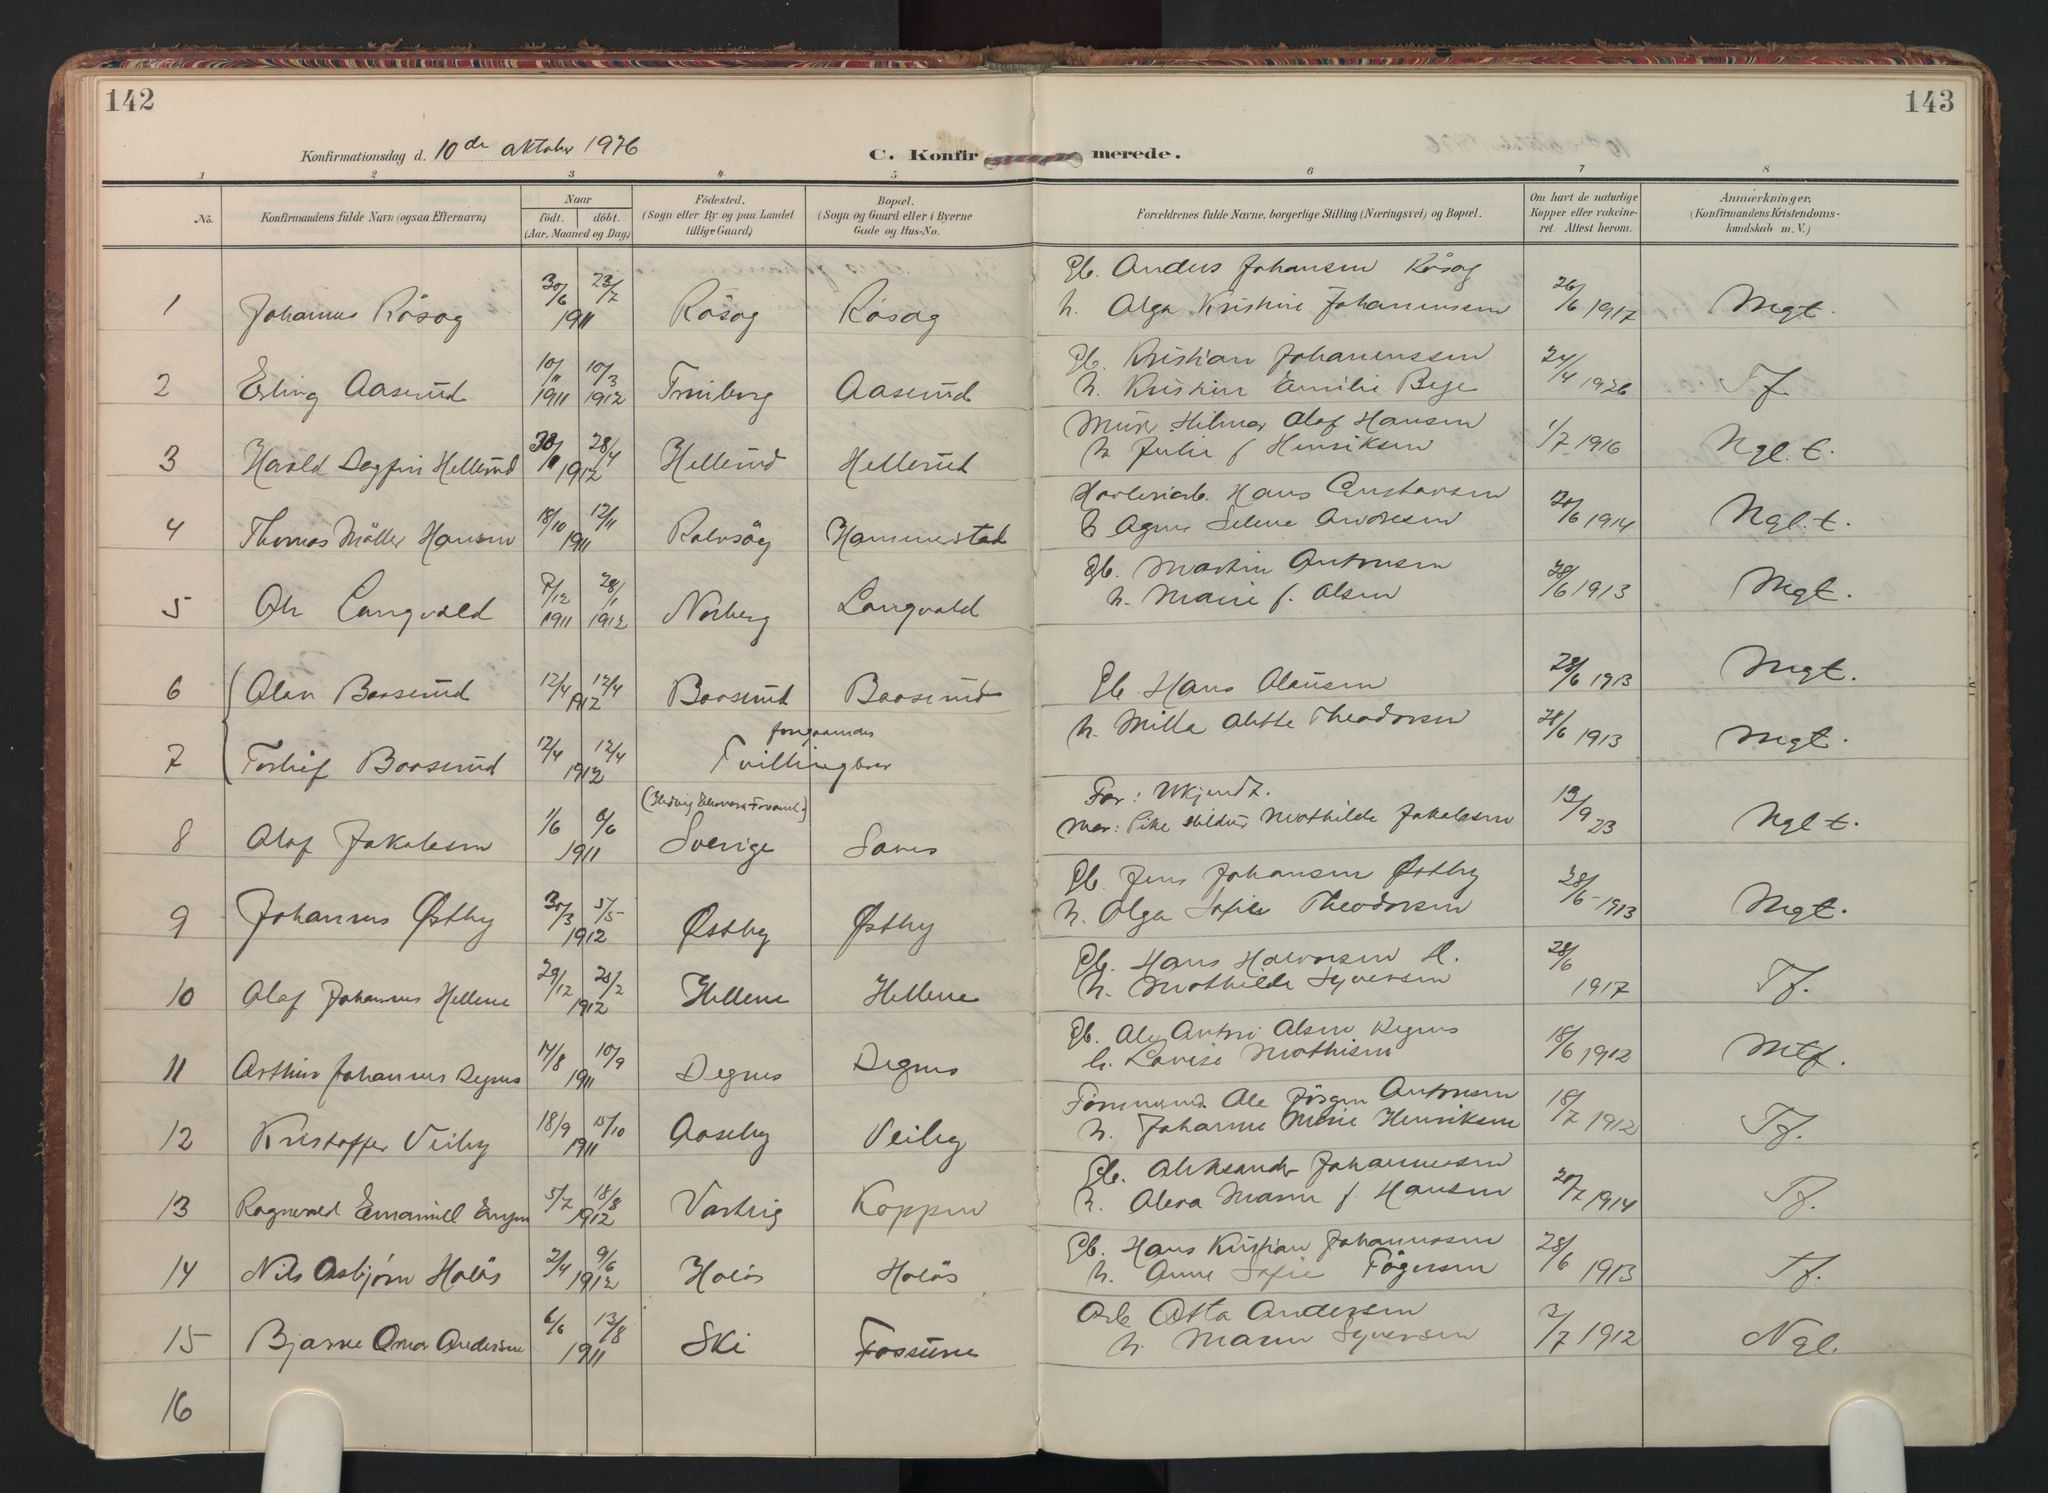 142
143
Konfirmationsdag d. 10de oktober 1926
C. Konfirmerede.
1 2 3 4 5 6 7 8
No.
Konfirmandens fulde Navn (ogsaa Efternavn)
Naar
födt. döbt.
(Aar, Maaned og Dag.)
Födested.
(Sogn eller By og paa Landet
tillige Gaard.)
Bopæl.
(Sogn og Gaard eller i Byerne
Gade og Hus-No.
Forældrenes fulde Navne, borgerlige Stilling (Næringsvei) og Bopæl.
Om havt de naturlige
Kopper eller vakcine-
ret. Attest herom.
Anmærkninger.
(Konfirmandens Kristendoms-
kundskab m. V.)
Gb. Anders Johansen Råsag
1 Johannes Råsag 30/6 23/7 1911 Råsag Råsag
h. Olga Kristine Johannessen 26/6 1917 Mgt.
Gb. Kristian Johannessen
2 Erling Aaserud 10/11 1911 10/3 1912 Aaserud
h. Kristin Emilie Bye 24/4 1926 Tf.
Murer Hilmar Olaf Hansen
3 Harald Dagfin Hellerud 28/4 1912 Hellerud Hellerud
h. Julie f Henriksen 1/7 1916 Ngl. t.
Hans Gustavsen
4 Thomas Möller Hansen 18/10 12/11 1911 Hammerstad
h Agnes Selene Andresen 1914 Ngl. t.
Gb. Martin Antonsen
5 Ole Langvald 1911 28/1 1912 Norberg Langvald
h. Marie f. Olsen 28/6 1913 Mgt.
6 Olav Baaserud 12/4 12/4 1912 Baaserud Baaserud
Gb Hans Olausen 28/6 1913 Mgt.
h. Milla Theodorsen 28/6 1913 Mgt.
7 Torleif Baaserud 12/4 12/4 1912 foregaaendes
Tvillingbror
For: Ukjendt.
8 Olaf Jakobsen 1/6 6/6 1911 Sverige
Mor: Pike Mathilde Jakobsen 13/9 23 Ngl t.
Gb. Jens Johansen Østby
9 Johannes Østby 30/3 5/5 1912 Østby Østby
h. Olga Sofie Theodorsen 28/6 - 1913 Mgt.
Gb. Hans Halvorsen H.
10 Olaf Johannes Hellene 29/12 20/2 1912 Hellene Hellene
h. Mathilde Syversen 28/6 1917 Tf.
Gb. Ole Anton Olsen
11 Arthur Johannes Degnes 17/8 10/9 1911 Degnes Degnes
h. Lovise Mathisen 18/6 1912 Mtf.
Ole Jörgen Antonsen
12 Kristoffer Veiby 18/9 15/10 1911 Aaseby Veiby
h. Johanne Marie Henriksen 18/7 1912 Tf.
Gb. Aleksander Johannessen
13 Ragnvald 5/7 18/8 1912 Koppen
h. Marie f. Hansen 20/7 1914 Tf.
Gb. Hans Kristian Johannessen
14 Nils Asbjørn Holös 2/4 9/6 1912 Holös Holös
h. Anne Sofie 28/6 1913 Tf.
Arb Otto Andersen
15 Bjarne Omar Andersen 6/6 13/8 1911 Ski Fossum
h. Maren Syversen 3/7 1912 Ngl.
16